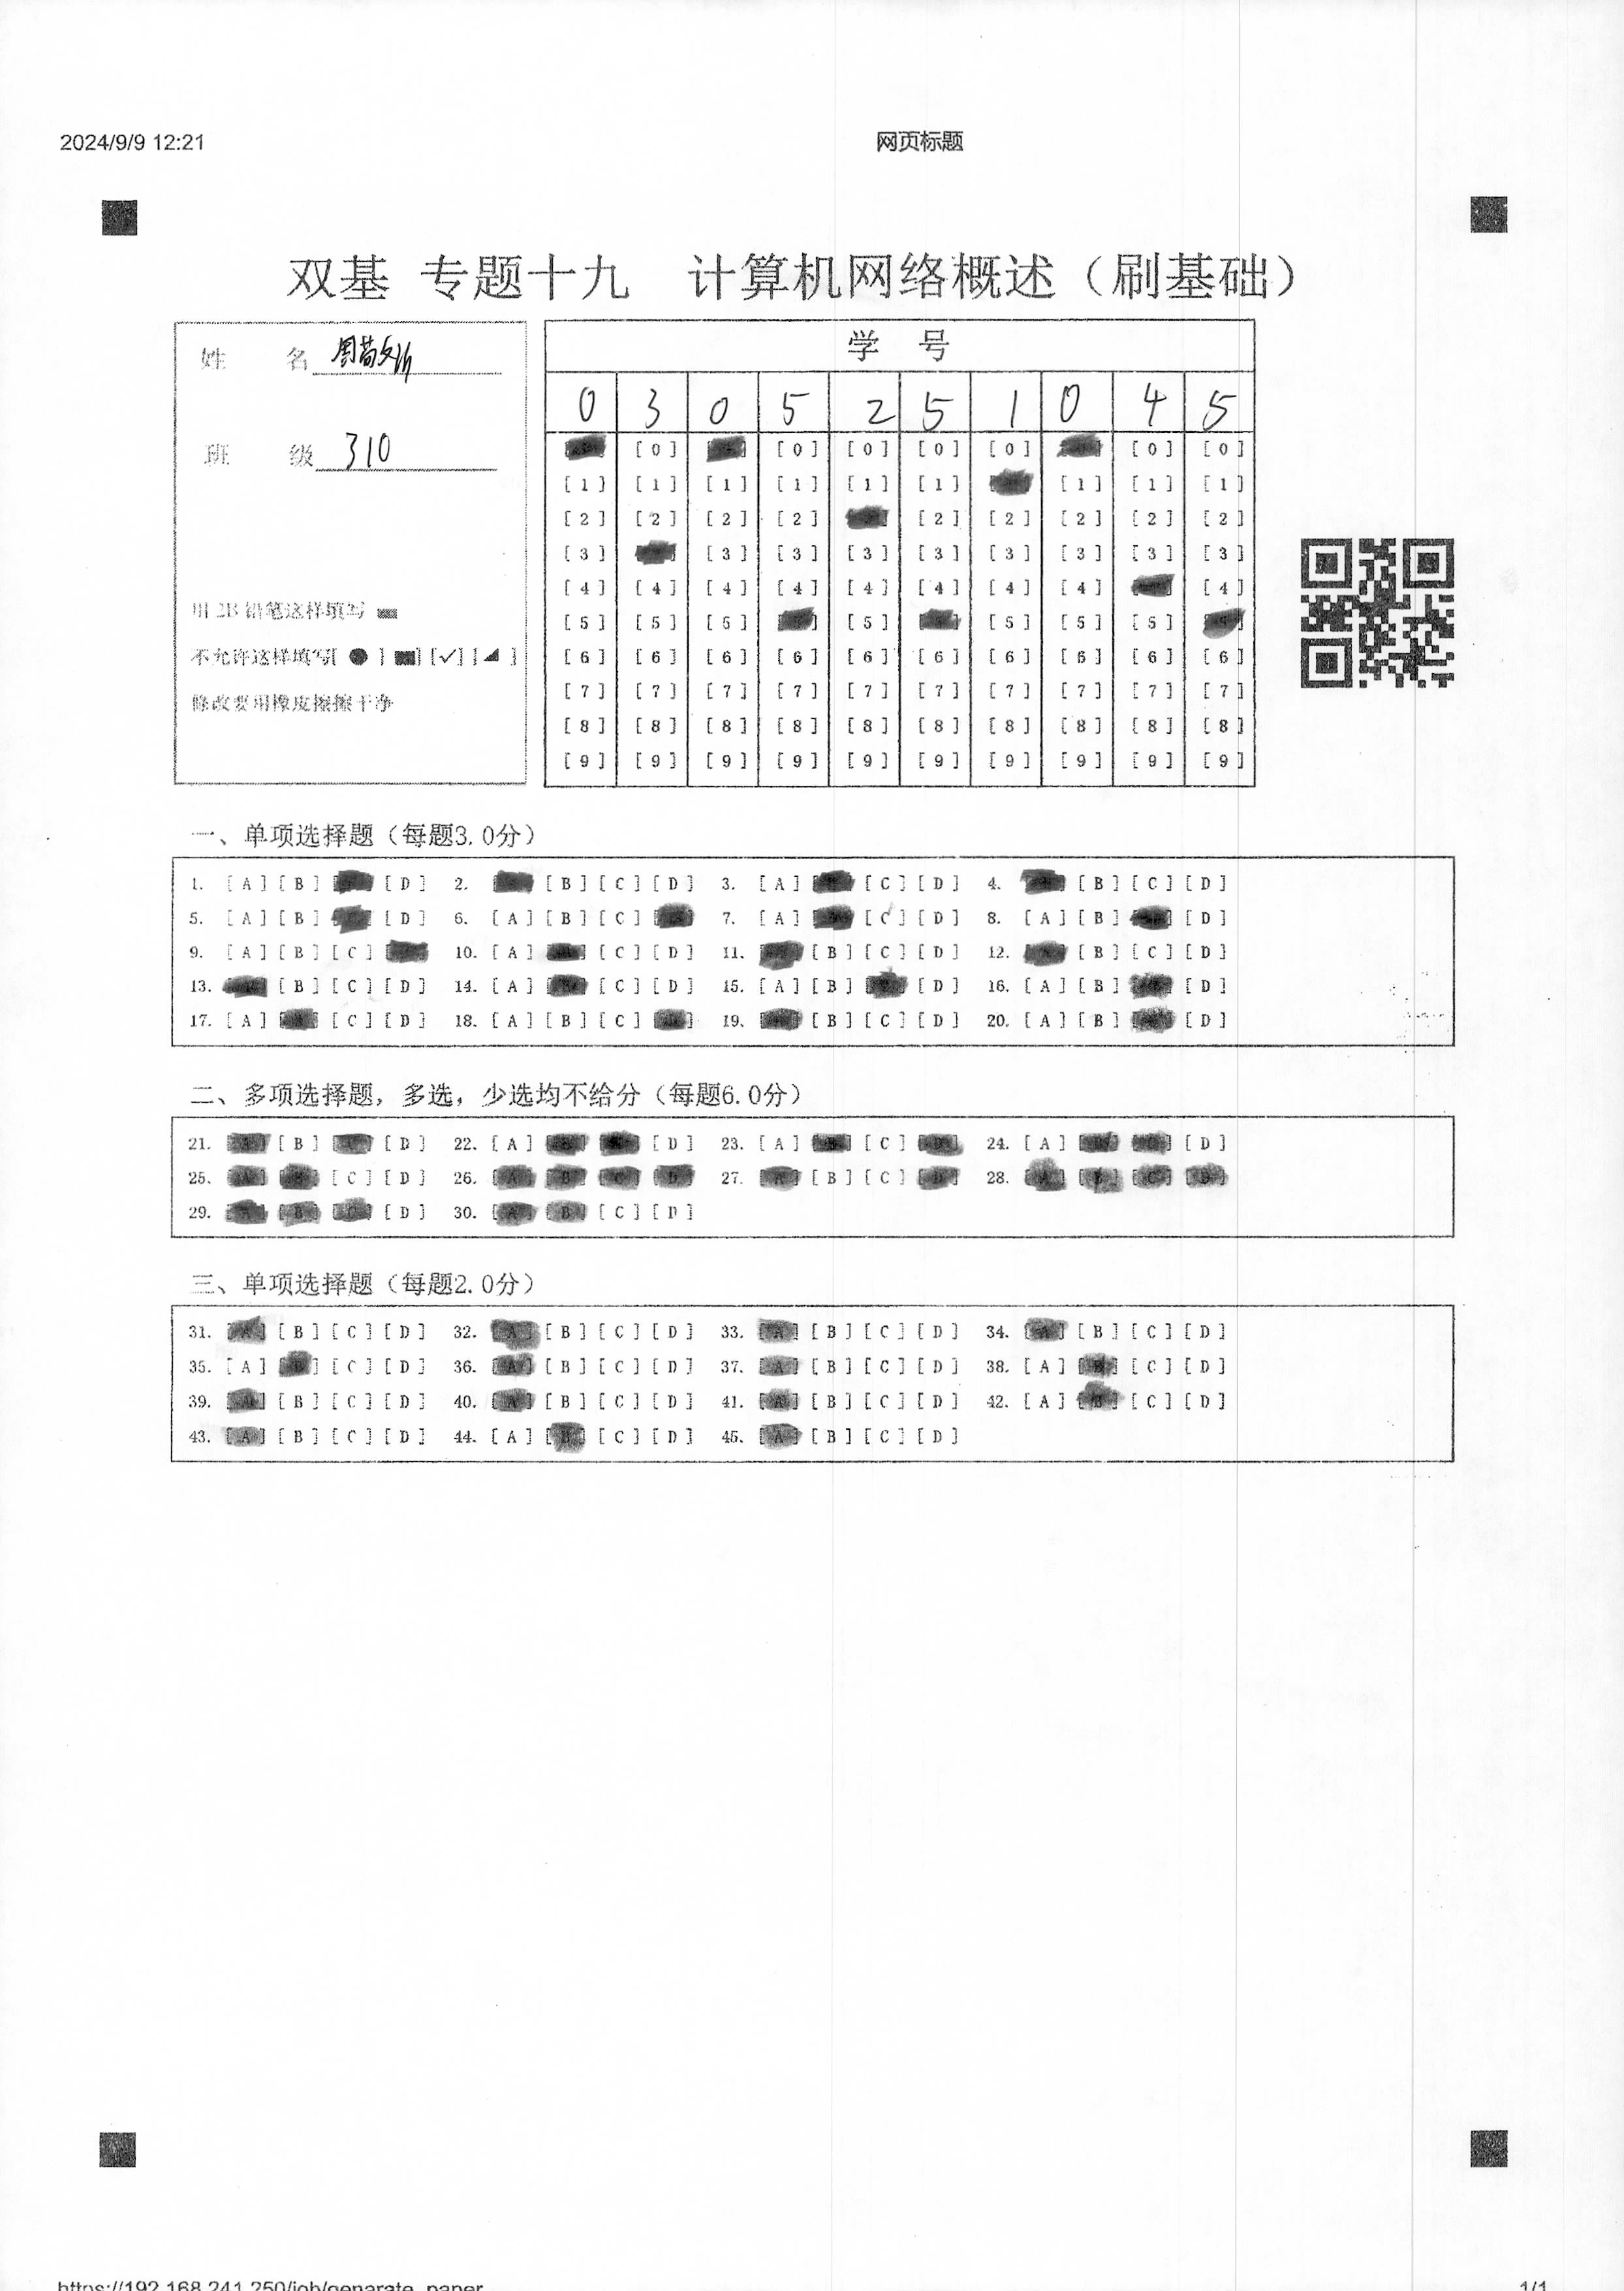 2024/9/9 12:21
网页标题
双基 专题十九 计算机网络概述（刷基础）
姓 名
班 级 310
用 2B 铅笔这样填写
不允许这样填写[ ● ] [■] [✓] [◢ ]
修改要用橡皮擦擦干净
学 号
0 3 0 5 2 5 1 0 4 5
[0] [0] [0] [0] [0] [0] [0]
[1] [1] [1] [1] [1] [1] [1] [1] [1]
[2] [2] [2] [2] [2] [2] [2] [2] [2]
[3] [3] [3] [3] [3] [3] [3] [3] [3]
[4] [4] [4] [4] [4] [4] [4] [4] [4]
[5] [5] [5] [5] [5] [5] [5]
[6] [6] [6] [6] [6] [6] [6] [6] [6] [6]
[7] [7] [7] [7] [7] [7] [7] [7] [7] [7]
[8] [8] [8] [8] [8] [8] [8] [8] [8] [8]
[9] [9] [9] [9] [9] [9] [9] [9] [9] [9]
一、单项选择题（每题3.0分）
1. [A] [B] [D] 2. [B] [C] [D] 3. [A] [C] [D] 4. [B] [C] [D]
5. [A] [B] [D] 6. [A] [B] [C] 7. [A] [C] [D] 8. [A] [B] [D]
9. [A] [B] [C] 10. [A] [C] [D] 11. [B] [C] [D] 12. [B] [C] [D]
13. [B] [C] [D] 14. [A] [C] [D] 15. [A] [B] [D] 16. [A] [B] [D]
17. [A] [C] [D] 18. [A] [B] [C] 19. [B] [C] [D] 20. [A] [B] [D]
二、多项选择题，多选，少选均不给分（每题6.0分）
21. [A] [B] [C] [D] 22. [A] [D] 23. [A] [B] [C] [D] 24. [A] [B] [C] [D]
25. [A] [B] [C] [D] 26. [A] [B] [C] [D] 27. [A] [B] [C] [D] 28. [A] [B] [C] [D]
29. [A] [B] [C] [D] 30. [A] [B] [C] [D]
三、单项选择题（每题2.0分）
31. [A] [B] [C] [D] 32. [A] [B] [C] [D] 33. [A] [B] [C] [D] 34. [A] [B] [C] [D]
35. [A] [B] [C] [D] 36. [A] [B] [C] [D] 37. [A] [B] [C] [D] 38. [A] [B] [C] [D]
39. [A] [B] [C] [D] 40. [A] [B] [C] [D] 41. [A] [B] [C] [D] 42. [A] [B] [C] [D]
43. [A] [B] [C] [D] 44. [A] [B] [C] [D] 45. [A] [B] [C] [D]
https://192.168.241.250/job/genarate_paper
1/1